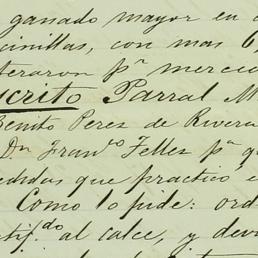 ganado mayor en
cinillas, con mas 6,
teraron pª mercio
scrito Parral M
Benito Peres de Rivera
Dn Franco Felles pª q
edidas que practico e
Como lo pide: ord
tif.do al calce, y dev